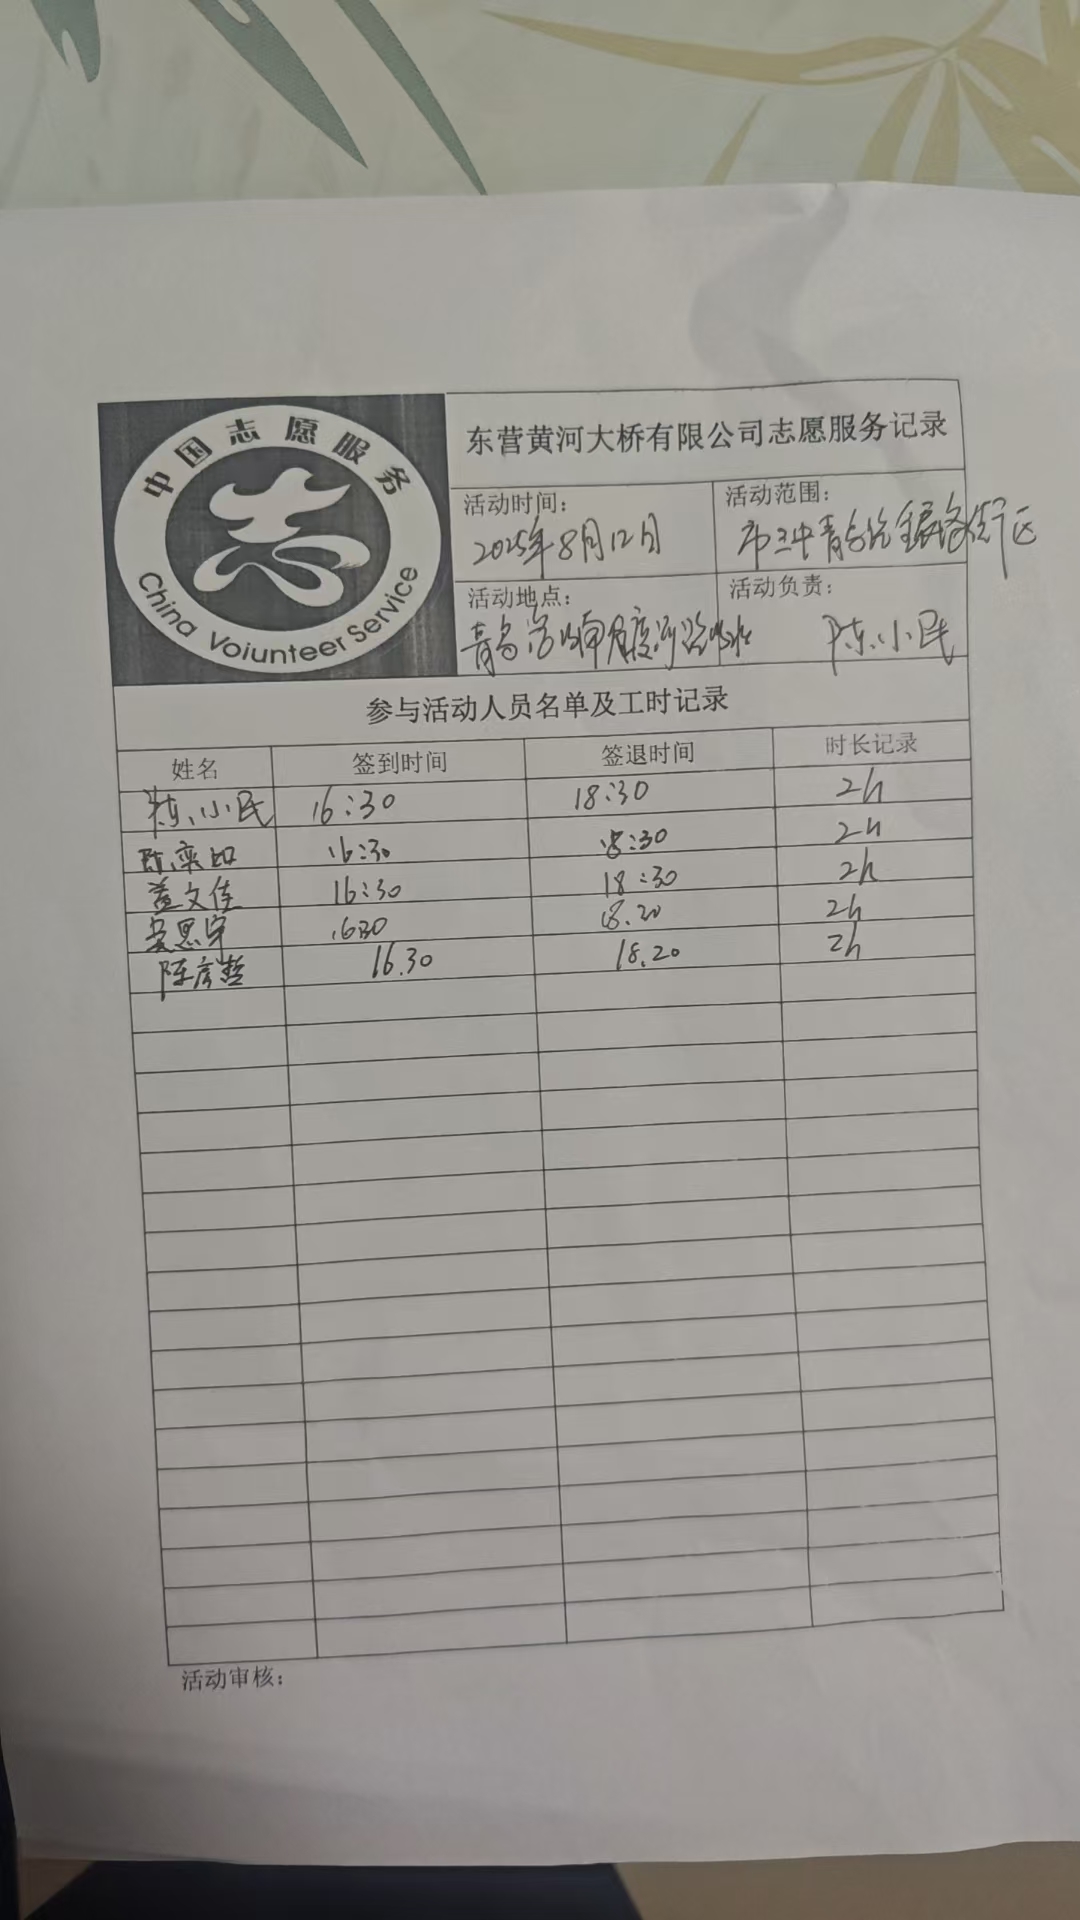 中国志愿服务
China Voiunteer Service
东营黄河大桥有限公司志愿服务记录
活动时间：
2025年8月12日
活动范围：
市三中青
街区
活动地点：
青
活动负责：
陈小民
参与活动人员名单及工时记录
姓名 签到时间 签退时间 时长记录
陈小民 16:30 18:30 2h
陈奕 16:30 18:30 2h
盖文佳 16:30 18:30 2h
安思宇 1630 18.20 2h
陈彦哲 16.30 18.20 2h
活动审核：